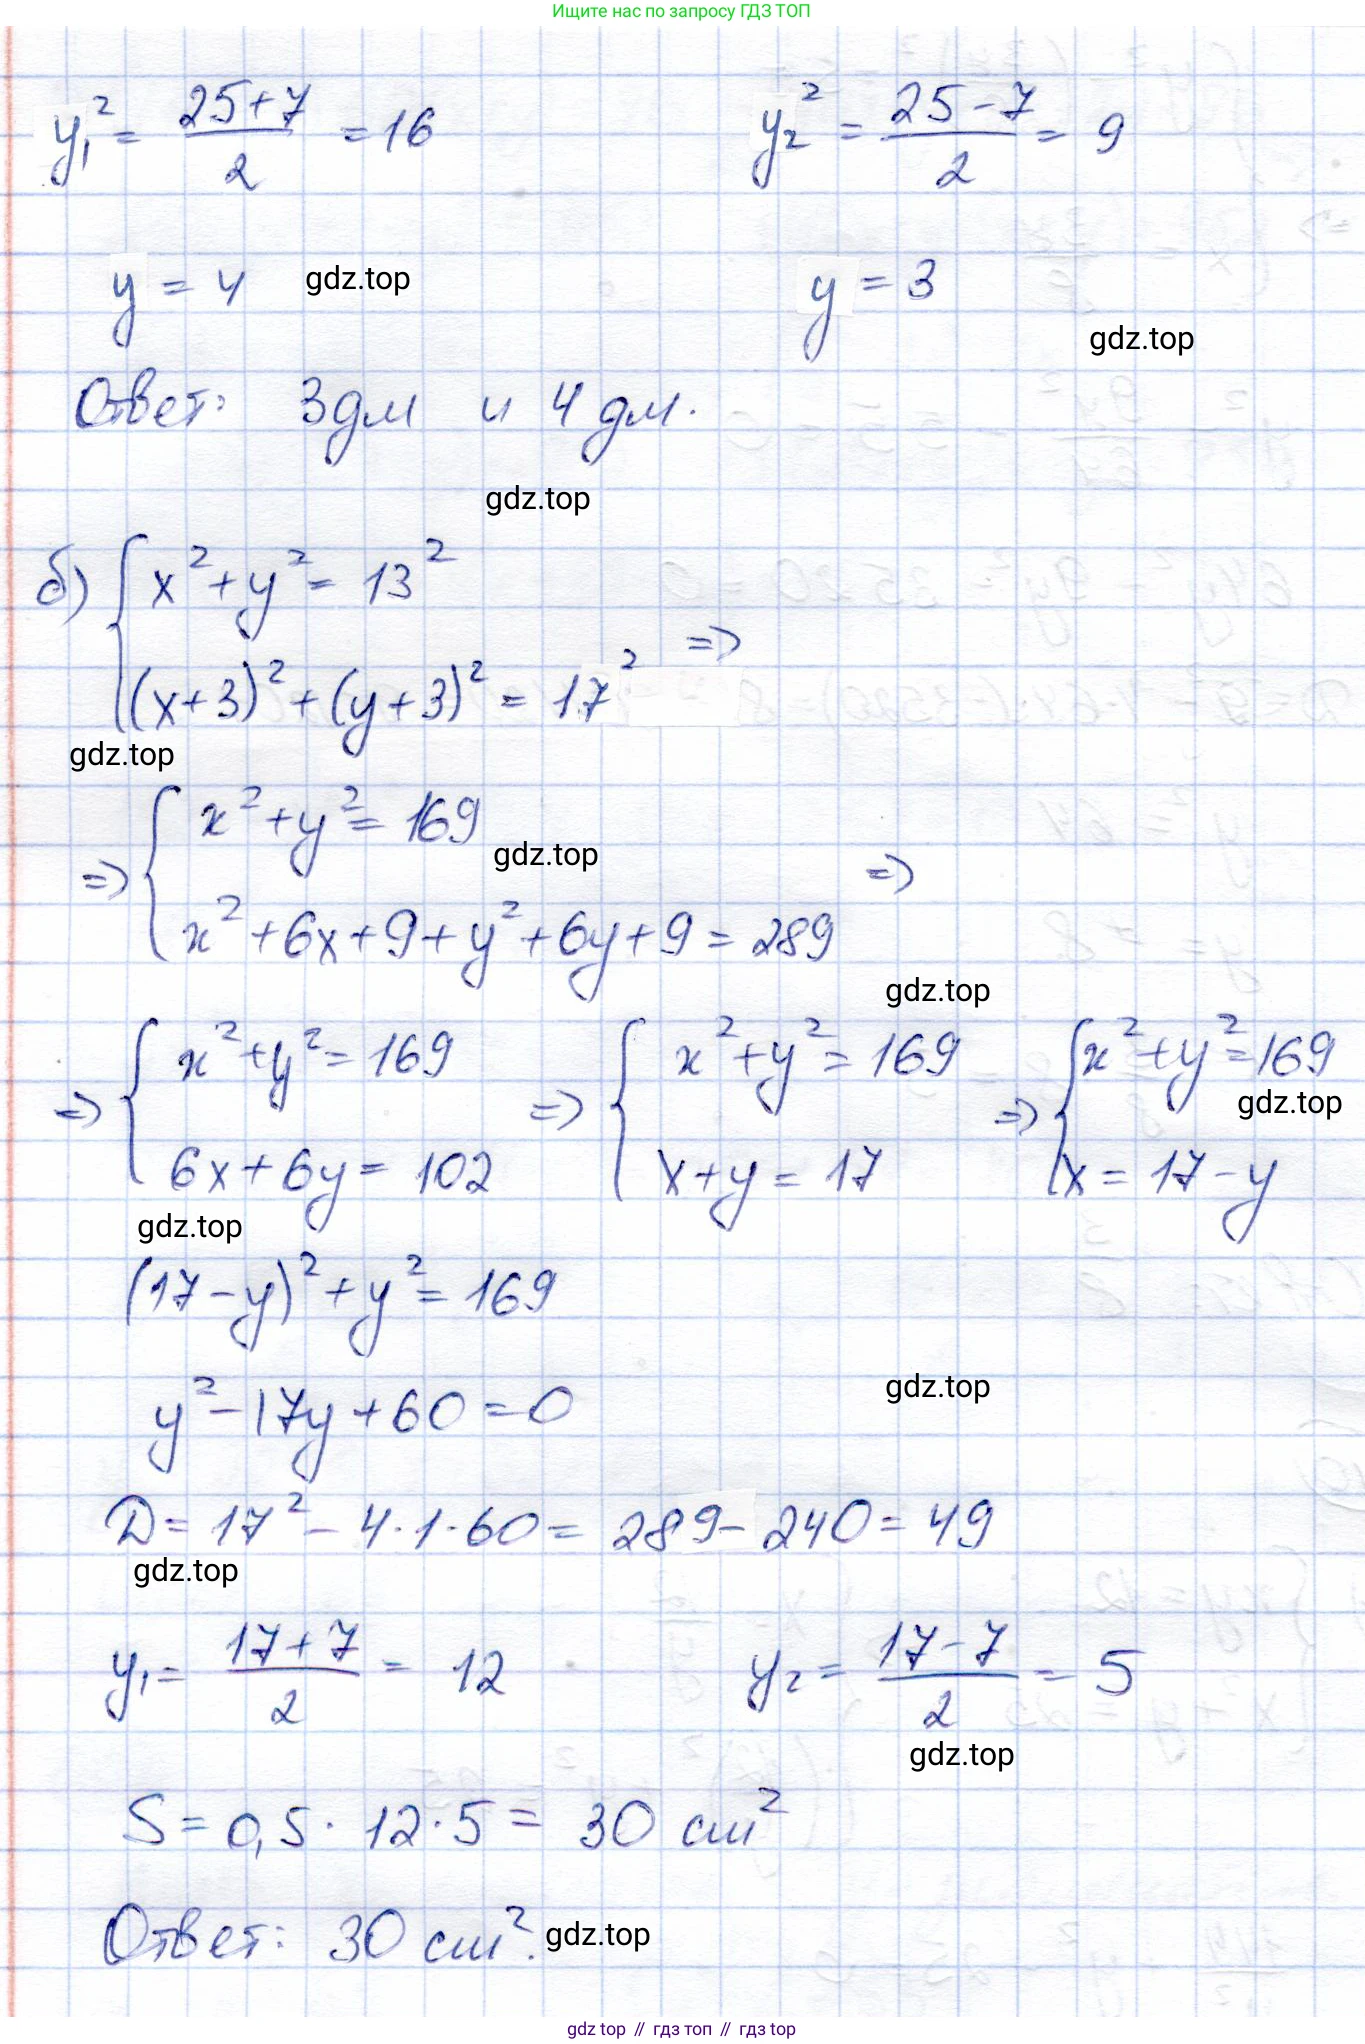 Ищите нас по запросу ГДЗ ТОП
y₁² = (25+7)/2 = 16    y₂² = (25-7)/2 = 9
y = 4 gdz.top    y = 3
gdz.top
Ответ: 3 дм и 4 дм.
gdz.top
б) { x² + y² = 13²
(x+3)² + (y+3)² = 17² =>
gdz.top
=> { x² + y² = 169
gdz.top
x² + 6x + 9 + y² + 6y + 9 = 289 =>
gdz.top
=> { x² + y² = 169 => { x² + y² = 169 => { x² + y² = 169
gdz.top
6x + 6y = 102    x + y = 17    x = 17 - y
gdz.top
(17 - y)² + y² = 169
gdz.top
y² - 17y + 60 = 0
D = 17² - 4·1·60 = 289 - 240 = 49
gdz.top
y₁ = (17+7)/2 = 12    y₂ = (17-7)/2 = 5
gdz.top
S = 0,5 · 12 · 5 = 30 см²
Ответ: 30 см². gdz.top
gdz top // гдз топ // gdz top